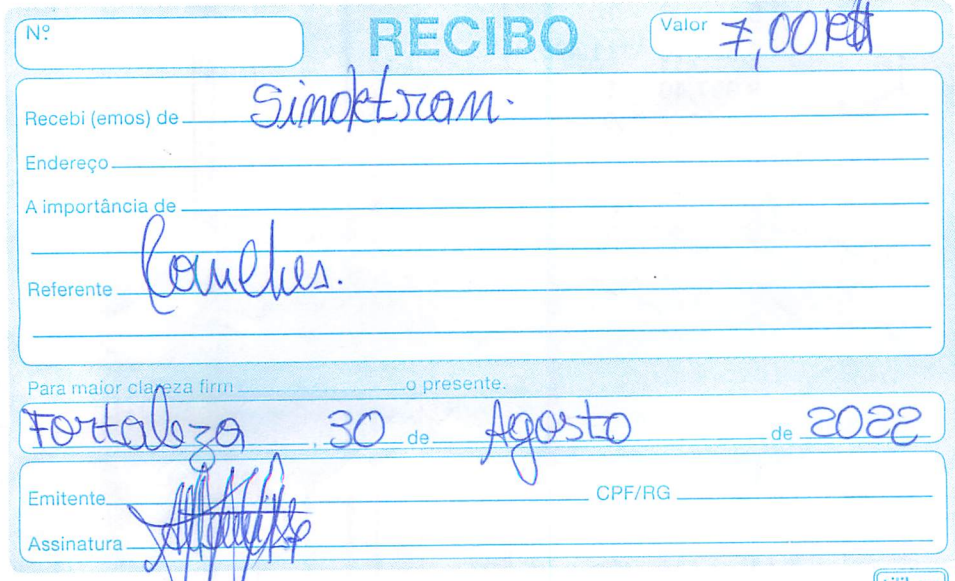 Nº RECIBO Valor 7,00 R$
Recebi (emos) de Sindetran.
Endereço
A importância de
Referente Lanches.
Para maior clareza firm o presente.
Fortaleza, 30 de Agosto de 2022
Emitente CPF/RG
Assinatura